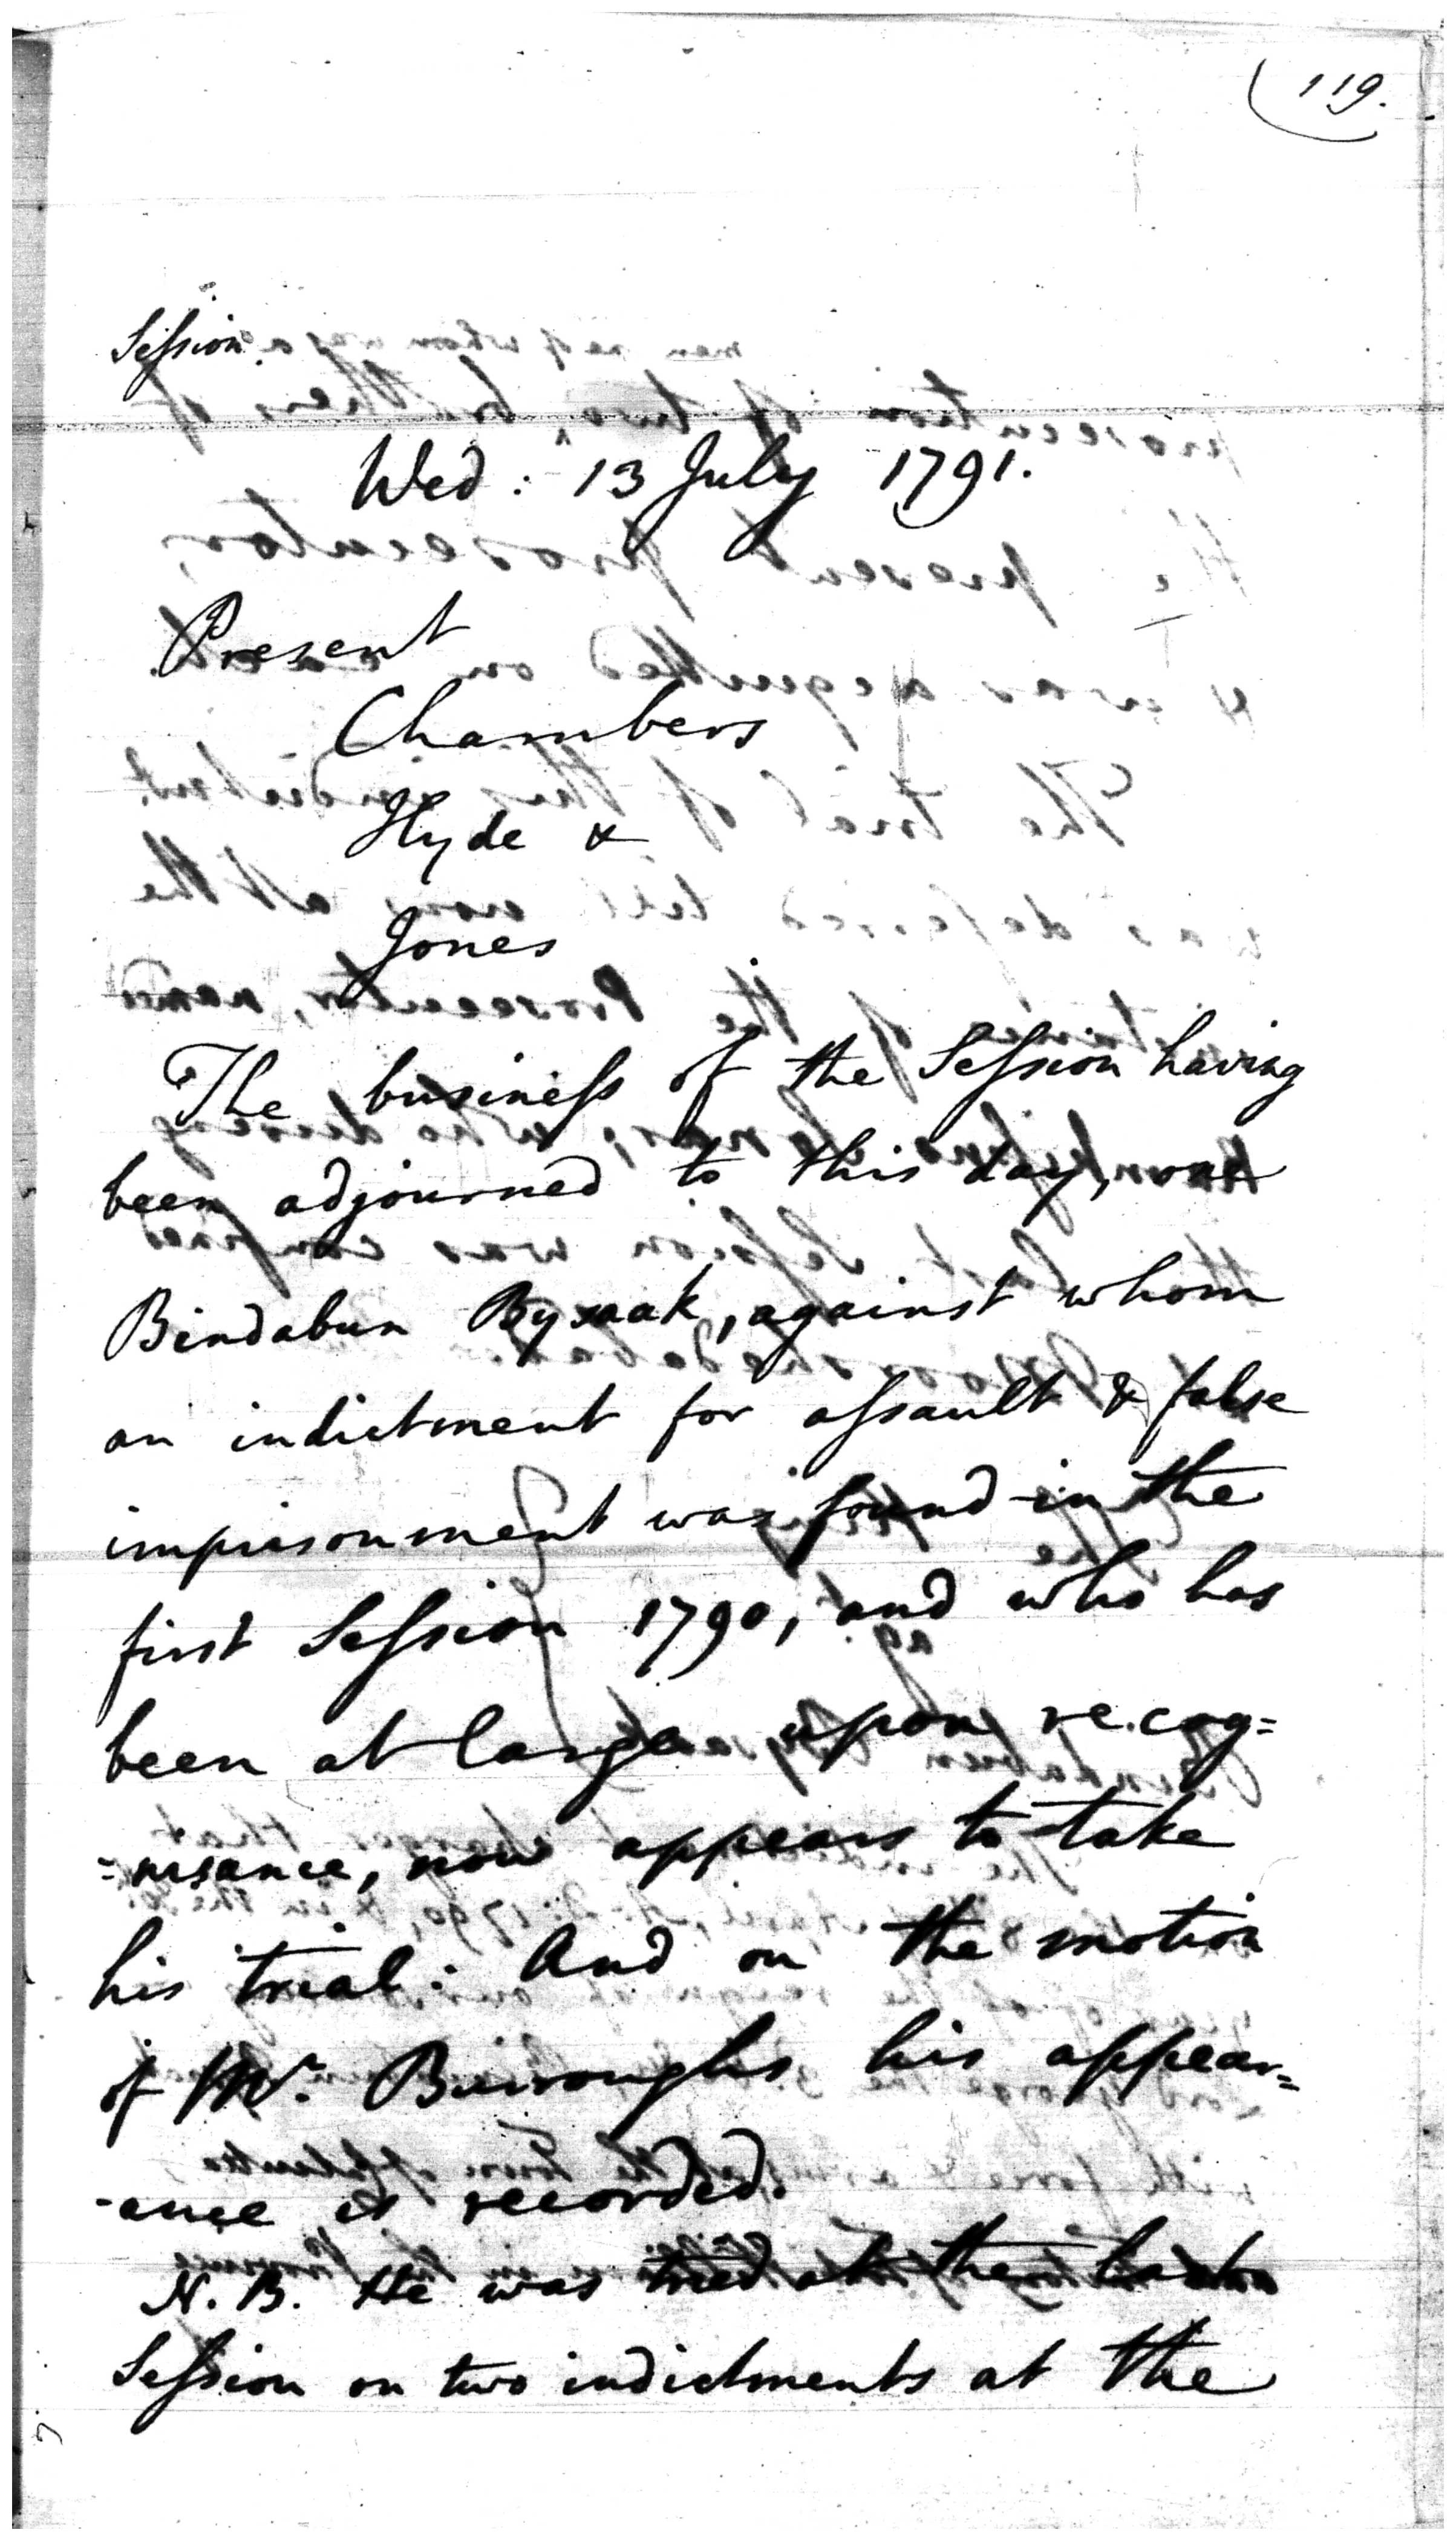 119.
Session.
Wed: 13 July 1791.
Present
Chambers
Hyde &
Jones
The business of the Session having
been adjourned to this day, one
Bindabun Bysaak, against whom
an indictment for assault & false
imprisonment was found in the
first Session 1790, and who has
been at large upon recog=
=nisance, now appears to take
his trial: And on the motion
of Mr. Burroughs his appear=
-ance is recorded.
N.B. He was tried at the last
Session on two indictments at the